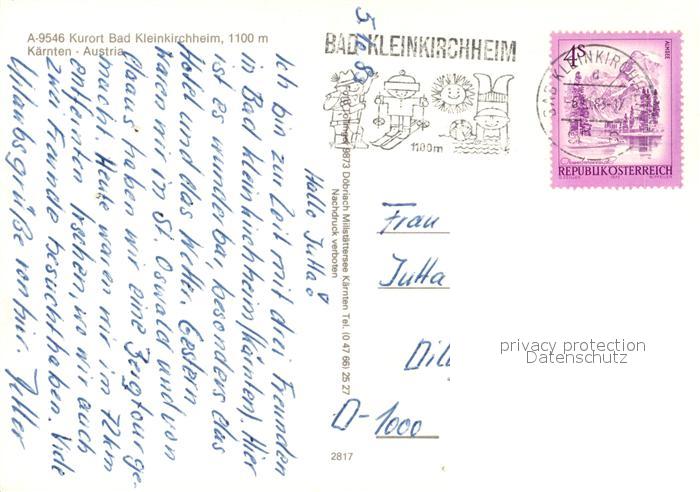 A-9546 Kurort Bad Kleinkirchheim, 1100 m
Kärnten - Austria
BAD KLEINKIRCHHEIM
1100m
BAD KLEINKIRCHHEIM
4S
ALMSEE
REPUBLIK ÖSTERREICH
8873 Döbriach Millstättersee Kärnten Tel. (0 47 66) 25 27
Nachdruck verboten
Hallo Jutta!
Ich bin zur Zeit mit drei Freunden
in Bad Kleinkirchheim (Kärnten). Hier
ist es wunderbar, besonders das
Hotel und das Wetter. Gestern
waren wir in St. Oswald und von
da aus haben wir eine Bergtour ge-
macht. Heute waren wir im 72 km
entfernten, wo wir auch
zwei Freunde besucht haben. Viele
Urlaubsgrüße von
Frau
Jutta
D-1000
2817
privacy protection
Datenschutz